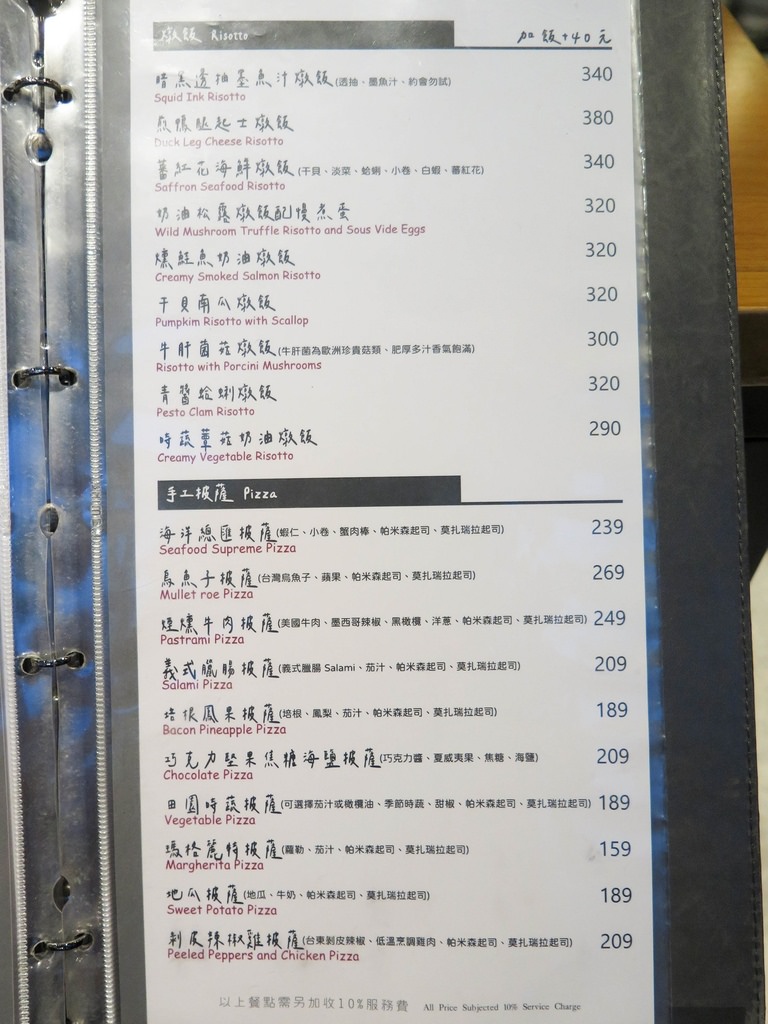 燉飯 Risotto 加飯+40元
暗黑透抽墨魚汁燉飯(透抽、墨魚汁、約會勿試) 340
Squid Ink Risotto
煎鴨腿起士燉飯 380
Duck Leg Cheese Risotto
蕃紅花海鮮燉飯(干貝、淡菜、蛤蜊、小卷、白蝦、蕃紅花) 340
Saffron Seafood Risotto
奶油松露燉飯配慢煮蛋 320
Wild Mushroom Truffle Risotto and Sous Vide Eggs
燻鮭魚奶油燉飯 320
Creamy Smoked Salmon Risotto
干貝南瓜燉飯 320
Pumpkim Risotto with Scallop
牛肝菌菇燉飯(牛肝菌為歐洲珍貴菇類、肥厚多汁香氣飽滿) 300
Risotto with Porcini Mushrooms
青醬蛤蜊燉飯 320
Pesto Clam Risotto
時蔬蕈菇奶油燉飯 290
Creamy Vegetable Risotto
手工披薩 Pizza
海洋總匯披薩(蝦仁、小卷、蟹肉棒、帕米森起司、莫扎瑞拉起司) 239
Seafood Supreme Pizza
烏魚子披薩(台灣烏魚子、蘋果、帕米森起司、莫扎瑞拉起司) 269
Mullet roe Pizza
煙燻牛肉披薩(美國牛肉、墨西哥辣椒、黑橄欖、洋蔥、帕米森起司、莫扎瑞拉起司) 249
Pastrami Pizza
義式臘腸披薩(義式臘腸 Salami、茄汁、帕米森起司、莫扎瑞拉起司) 209
Salami Pizza
培根鳳果披薩(培根、鳳梨、茄汁、帕米森起司、莫扎瑞拉起司) 189
Bacon Pineapple Pizza
巧克力堅果焦糖海鹽披薩(巧克力醬、夏威夷果、焦糖、海鹽) 209
Chocolate Pizza
田園時蔬披薩(可選擇茄汁或橄欖油、季節時蔬、甜椒、帕米森起司、莫扎瑞拉起司) 189
Vegetable Pizza
瑪格麗特披薩(蘿勒、茄汁、帕米森起司、莫扎瑞拉起司) 159
Margherita Pizza
地瓜披薩(地瓜、牛奶、帕米森起司、莫扎瑞拉起司) 189
Sweet Potato Pizza
剝皮辣椒雞披薩(台東剝皮辣椒、低溫烹調雞肉、帕米森起司、莫扎瑞拉起司) 209
Peeled Peppers and Chicken Pizza
以上餐點需另加收10%服務費 All Price Subjected 10% Service Charge